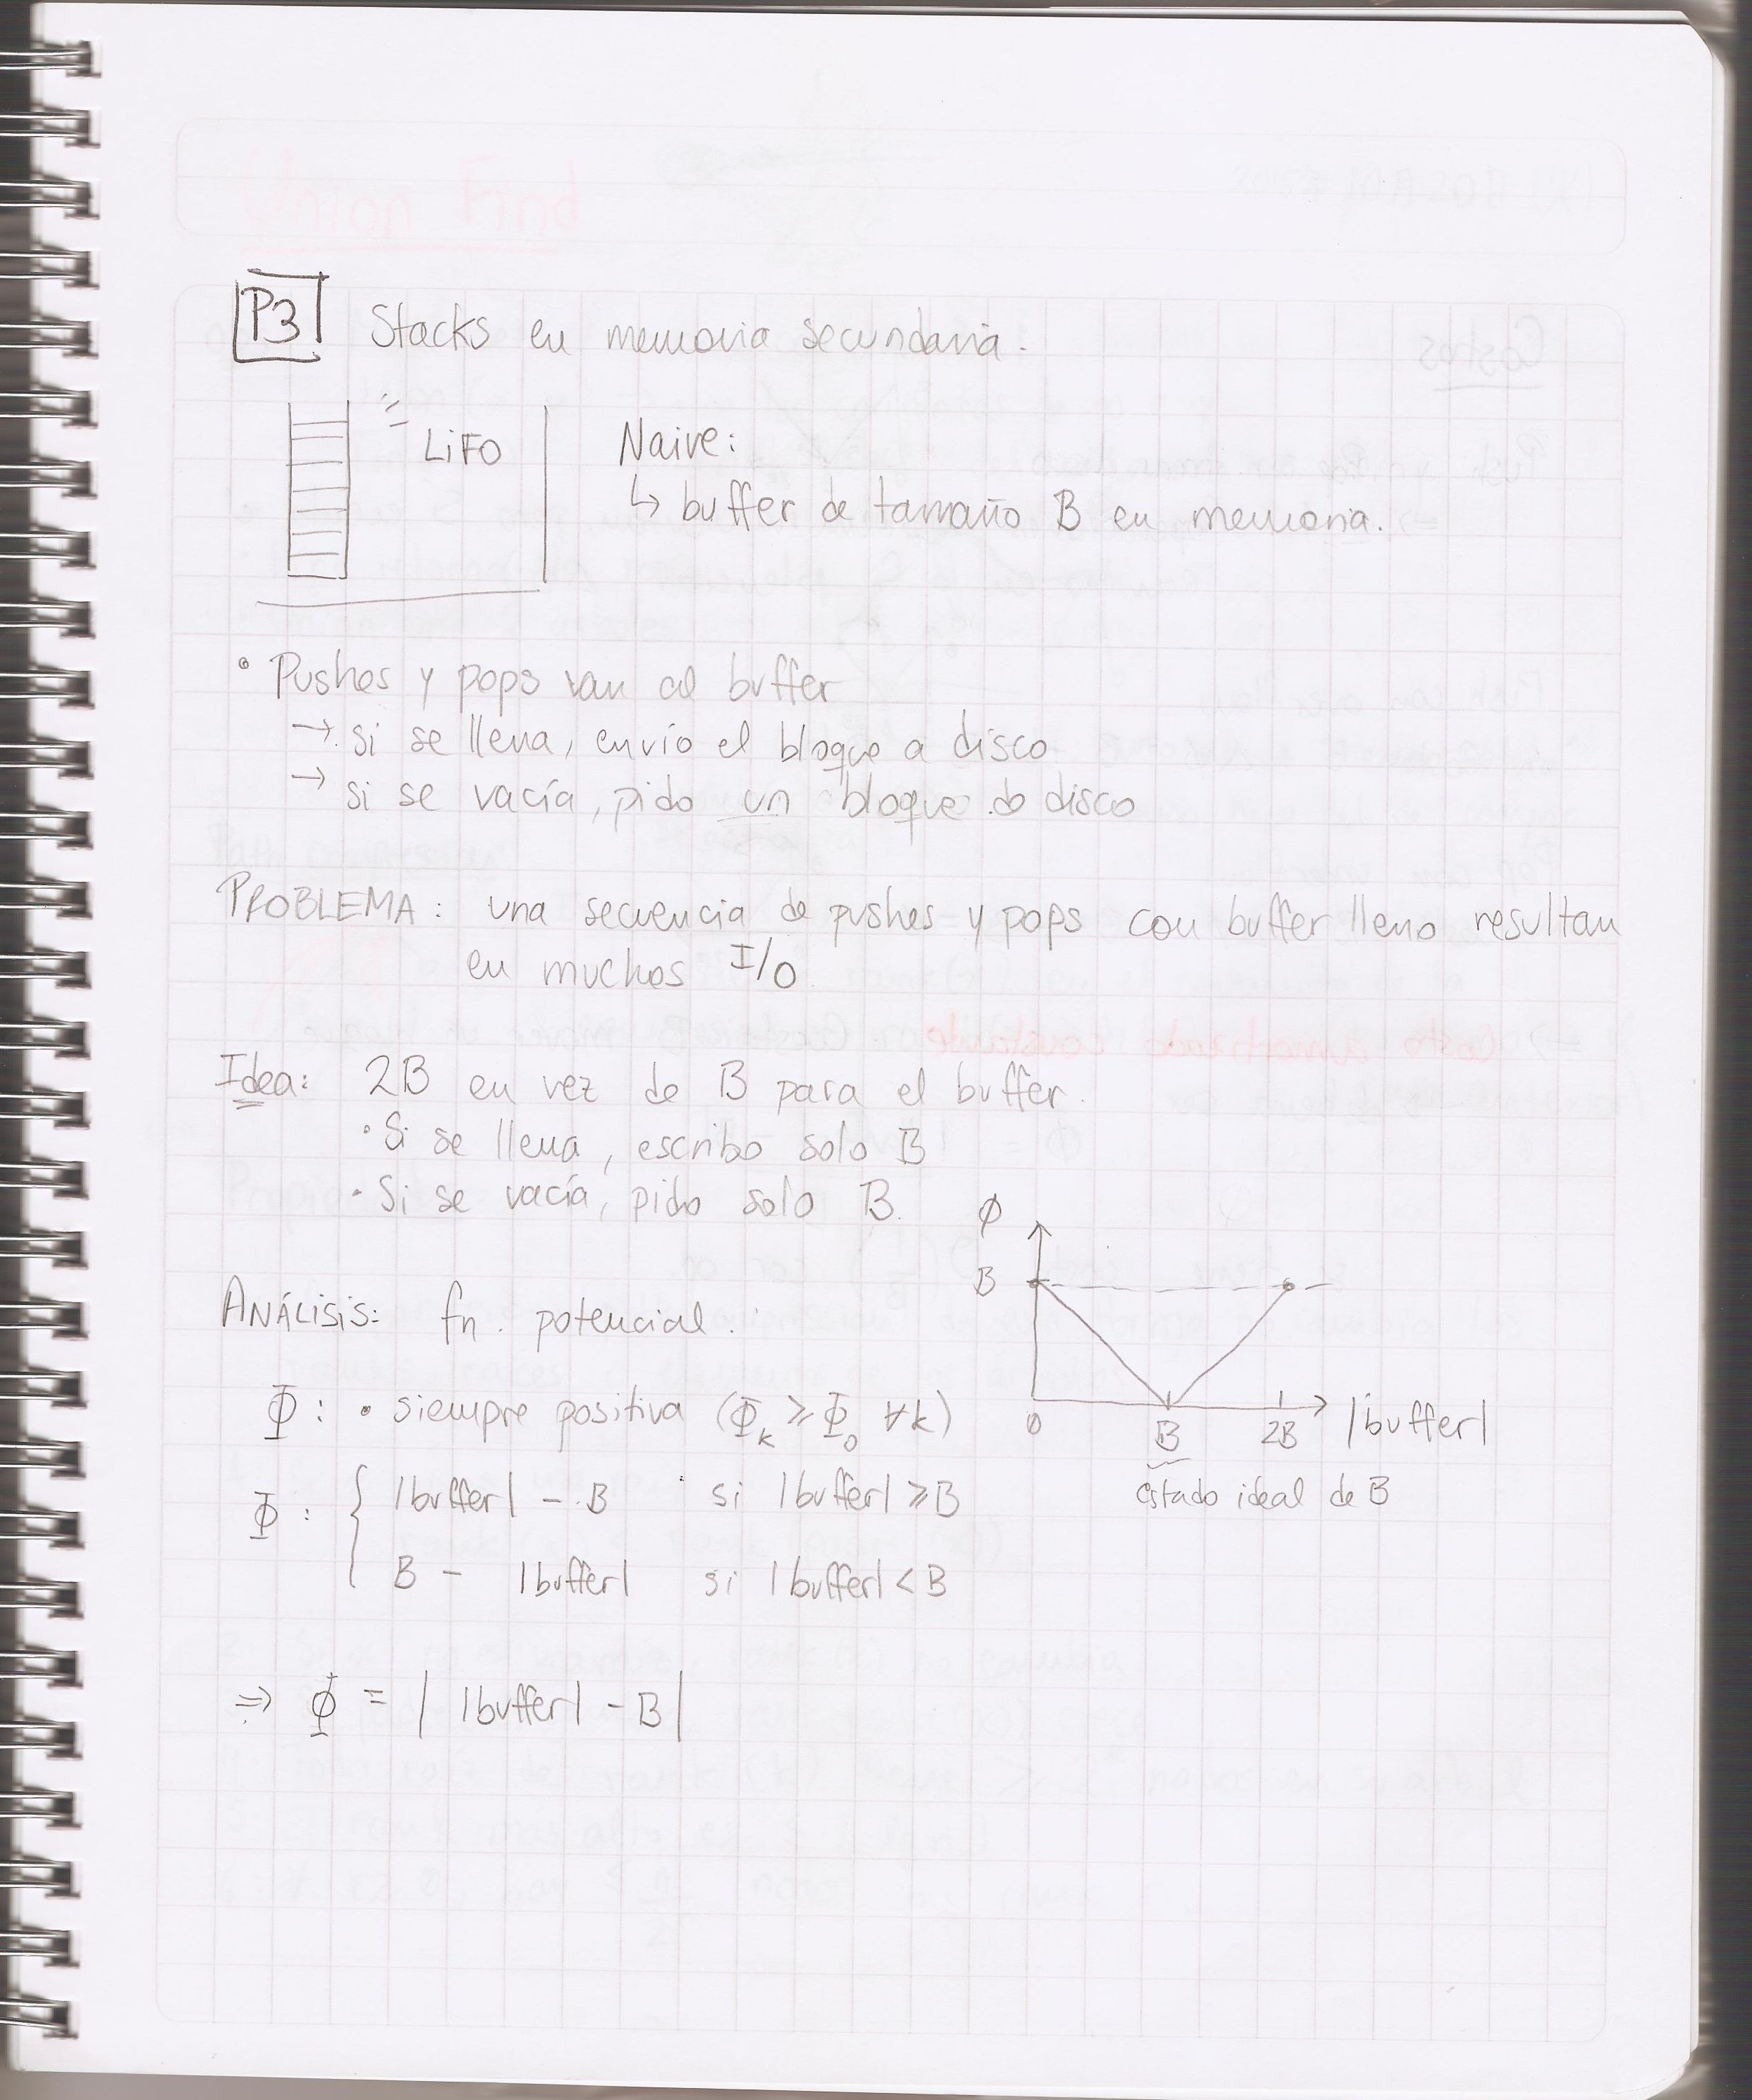 Union Find
P3 Stacks en memoria secundaria.
LiFO
Naive:
↳ buffer de tamaño B en memoria.
• Pushes y pops van al buffer
→ si se llena, envío el bloque a disco
→ si se vacía, pido un bloque do disco
PROBLEMA: una secuencia de pushes y pops con buffer lleno resultan
en muchos I/O
Idea: 2B en vez de B para el buffer.
• Si se llena, escribo solo B
• Si se vacía, pido solo B.
ANÁLISIS: fn. potencial.
Φ: • siempre positiva (Φₖ ≥ Φ₀ ∀k)
Φ: { |buffer| - B si |buffer| ≥ B
B - |buffer| si |buffer| < B
ϕ
B
0 B 2B |buffer|
estado ideal de B
⇒ Φ = | |buffer| - B |